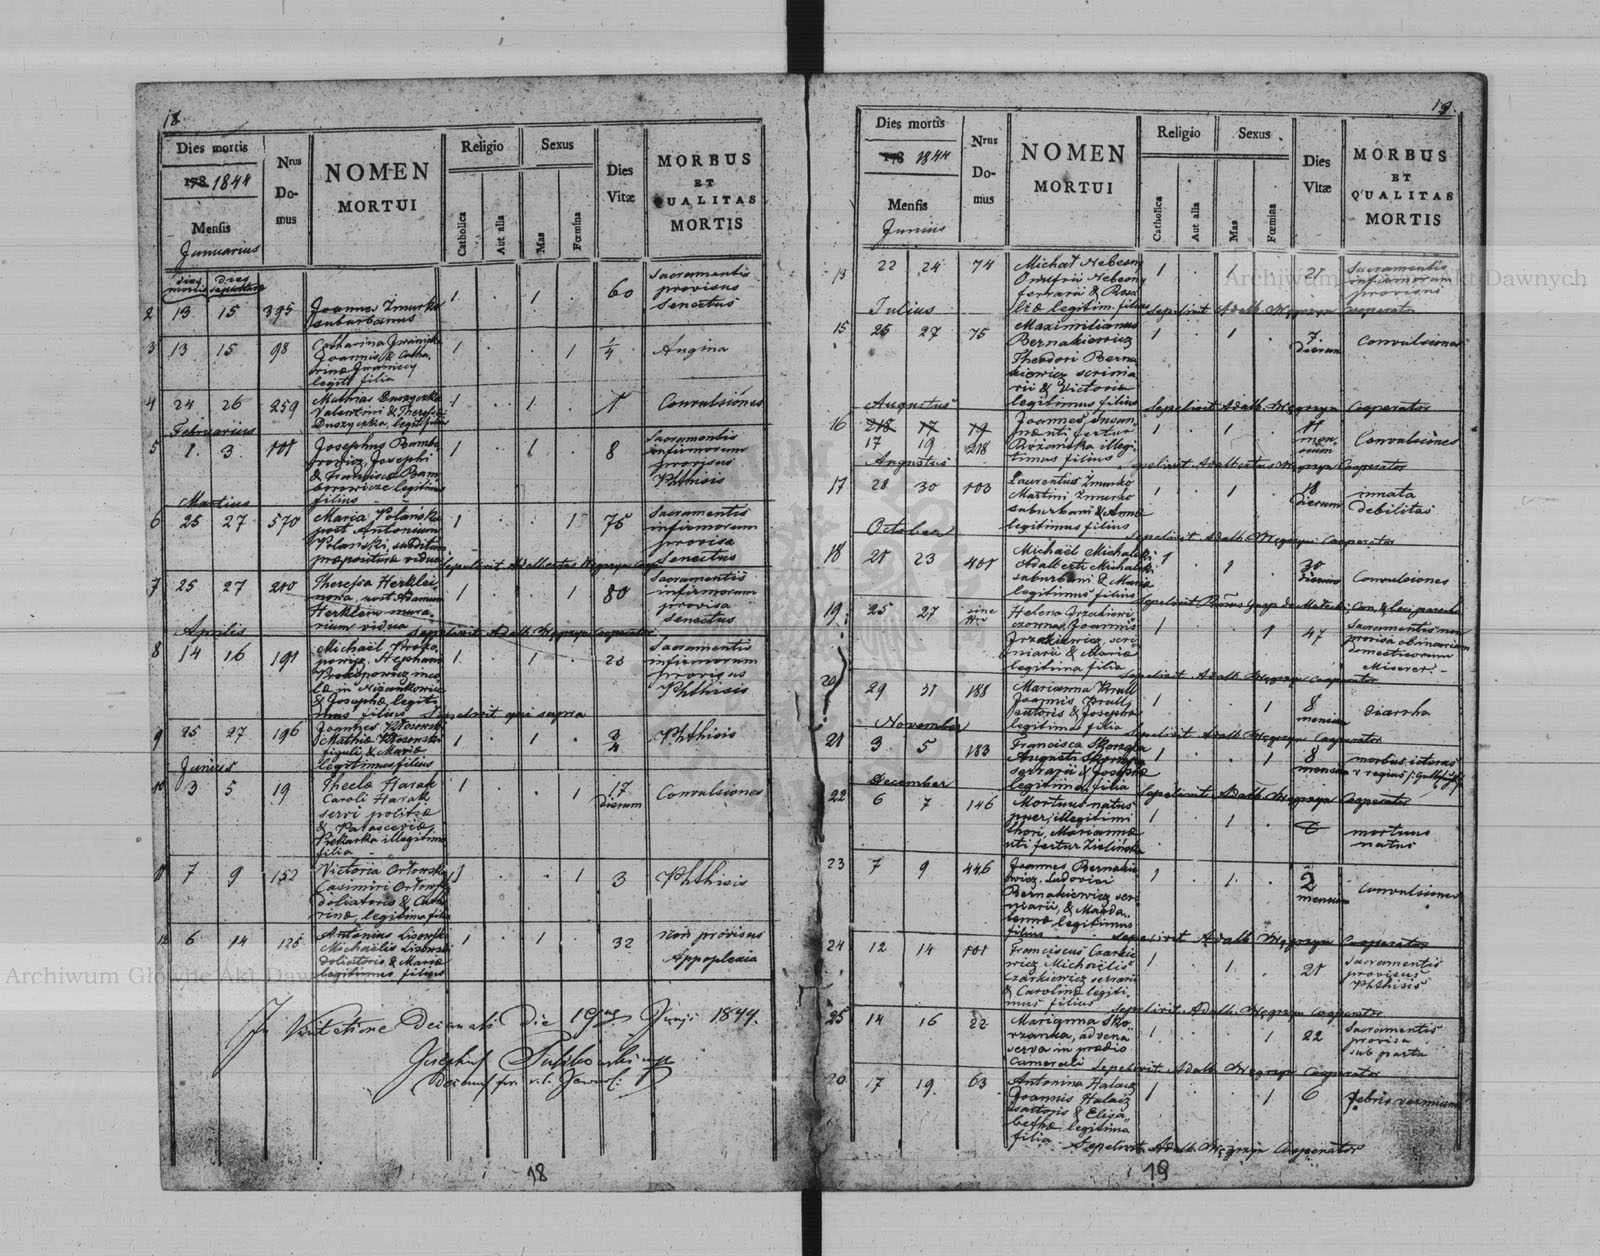 18.
Dies mortis
178 1844
Mensis
Januarius
dies mortis
dies sepulturae
Nrus
Do-
mus
NOMEN
MORTUI
Religio
Catholica
Aut alia
Sexus
Mas
Fœmina
Dies
Vitæ
MORBUS
ET
QUALITAS
MORTIS
2 13 15 395 Joannes Zmurko 1 . 1 . 60 Sacramentis
suburbanus provisus
senectus
3 13 15 98 Catharina 1 . . 1 1/4 Angina
Joannis & Catha
rinæ
legit. filia
4 24 26 259 Mathias Duszyczka 1 . 1 . 1 Convulsiones
Valentini & Theresiæ
Duszyczka, legit. filius
Februarius
5 1 3 101 Josephus Bombo 1 . 1 . 8 Sacramentis
rowicz, Josephi infirmorum
& Francisca Bom provisus
borowicze legitimus Phthisis
filius
Martius
6 25 27 570 Maria Polanska 1 . . 1 75 Sacramentis
post Antonium infirmorum
Polanski, subditum provisa
præpositura vidua Senectus
Sepelivit Adalbertus Węgrzyn Coop
7 25 27 210 Theressa Herklei 1 . . 1 80 Sacramentis
nowa, post Adamum infirmorum
Herklein mura provisa
rium vidua senectus
Aprilis
Sepelivit Adalb. Węgrzyn Cooperator
8 14 16 191 Michaël Proko 1 . 1 . Sacramentis
powicz, Stephani infirmorum
Prokopowicz provisus
in Phthisis
& Josephæ legiti
mus filius Sepelivit qui supra
9 25 27 196 Joannes Kłosowski 1 . 1 . 3/4 Phthisis
Mathiæ Kłosowski
figuli & Mariæ
legitimus filius
Junius
10 3 5 19 Thecla Harak 1 . . 1 17 dierum Convulsiones
Caroli Harak
servi
&
Piekarka illegitima
filia
11 7 9 152 Victoria Orłowska 1 . . 1 3 Phthisis
Casimiri Orłowski
doliatoris & Catha
rinæ, legitima filia
12 6 14 125 Antonius Lisowski 1 . 1 . 32 non provisus
Michaëlis Lisowski Appoplexia
doliatoris & Mariæ
legitimus filius
In Visitatione Decanali Die 19 Junii 1844.
Josephus
18
19.
Dies mortis
178 1844
Mensis
Junius
Nrus
Do-
mus
NOMEN
MORTUI
Religio
Catholica
Aut alia
Sexus
Mas
Fœmina
Dies
Vitæ
MORBUS
ET
QUALITAS
MORTIS
13 22 24 74 Michał Hebesny 1 . 1 . 21 Sacramentis
Onufrii Hebesny infirmorum
ferrarii & Rosa provisus
liæ legitim. filius Sepelivit Adalb. Węgrzyn Cooperator
Julius
15 25 27 75 Maximilianus 1 . 1 . 7 dierum Convulsiones
Bernakiewicz
Theodori Berna
kiewicz scrinia
rii & Victoriæ
legitimus filius Sepelivit Adalb. Węgrzyn Cooperator
Augustus
16 218 17 19
17 19 218 Joannes 1 . 1 . 11 men
sium Convulsiones
illegi
timus filius Sepelivit Adalbertus Węgrzyn Cooperator
Augustus
17 28 30 103 Laurentius Zmurko 1 . 1 . 18 dierum innata
Martini Zmurko debilitas
suburbani & Annæ
legitimus filius Sepelivit Adalb. Węgrzyn Cooperator
October
18 21 23 401 Michaël Michalski 1 . 1 . 30 dierum Convulsiones
Adalberti Michalski
suburbani & Mariæ
legitimus filius
19 25 27 sine Nro Helena 1 . . 1 47 Sacramentis non
Joannis provisa
scri domesticorum
niarii & Mariæ Miserer.
legitima filia Sepelivit Adalb. Węgrzyn Cooperator
20 29 31 188 Marianna Krull 1 . . 1 8 mensium diarrha
Joannis Krull
sutoris & Josephæ
legitima filia Sepelivit Adalb. Węgrzyn Cooperator
November
21 3 5 183 Francisca 1 . . 1 8 mensium morbus
Augusti
serrarii & Josephæ
legitima filia Sepelivit Adalb. Węgrzyn Cooperator
December
22 6 7 146 Mortuus natus 1 . 1 . mortuus
puer, illegitimi natus
thori, Mariannæ
uti fertur Zielińska
23 7 9 446 Joannes Bernakie 1 . 1 . 2 mensium Convulsiones
wicz, Ludovici
Bernakiewicz scri
niarii, & Magda
lenæ legitimus
filius Sepelivit Adalb. Węgrzyn Cooperator
24 12 14 101 Franciscus Czarkie 1 . 1 . 21 Sacramentis
wicz Michaëlis provisus
Czarkiewicz serrarii Phthisis
& Carolinæ legiti
mus filius Sepelivit Adalb. Węgrzyn Cooperator
25 14 16 22 Marianna Sko 1 . . 1 22 Sacramentis
rzanka, advena provisa
serva in prædio sub partu
Camerali Sepelivit Adalb. Węgrzyn Cooperator
20 17 19 63 Antonina Halacz 1 . . 1 6 febris
Joannis Halacz
sartoris & Elisa
bethæ legitima
filia Sepelivit Adalb. Węgrzyn Cooperator
19
Archiwum Główne Akt Dawnych
Archiwum Główne Akt Dawnych